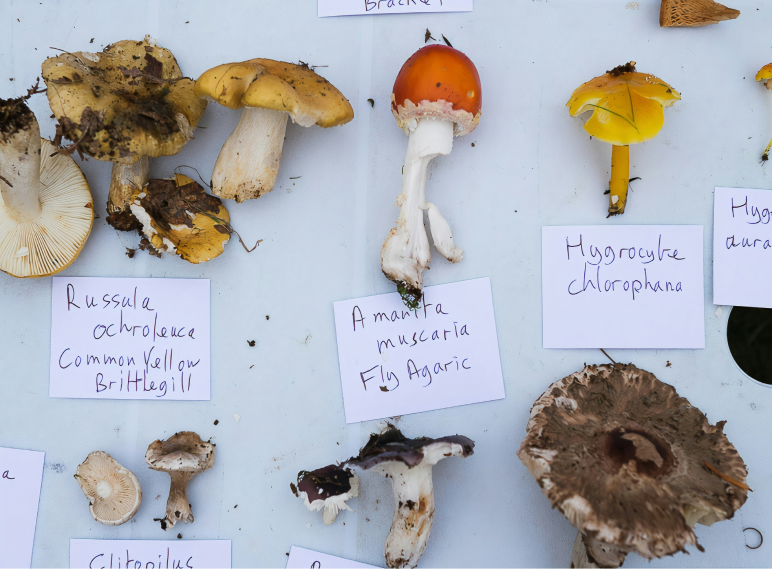 Bracket
Russula
ochroleuca
Common Yellow
Brittlegill
Amanita
muscaria
Fly Agaric
Hygrocybe
chlorophana
Hyg
aura
a
Clitopilus